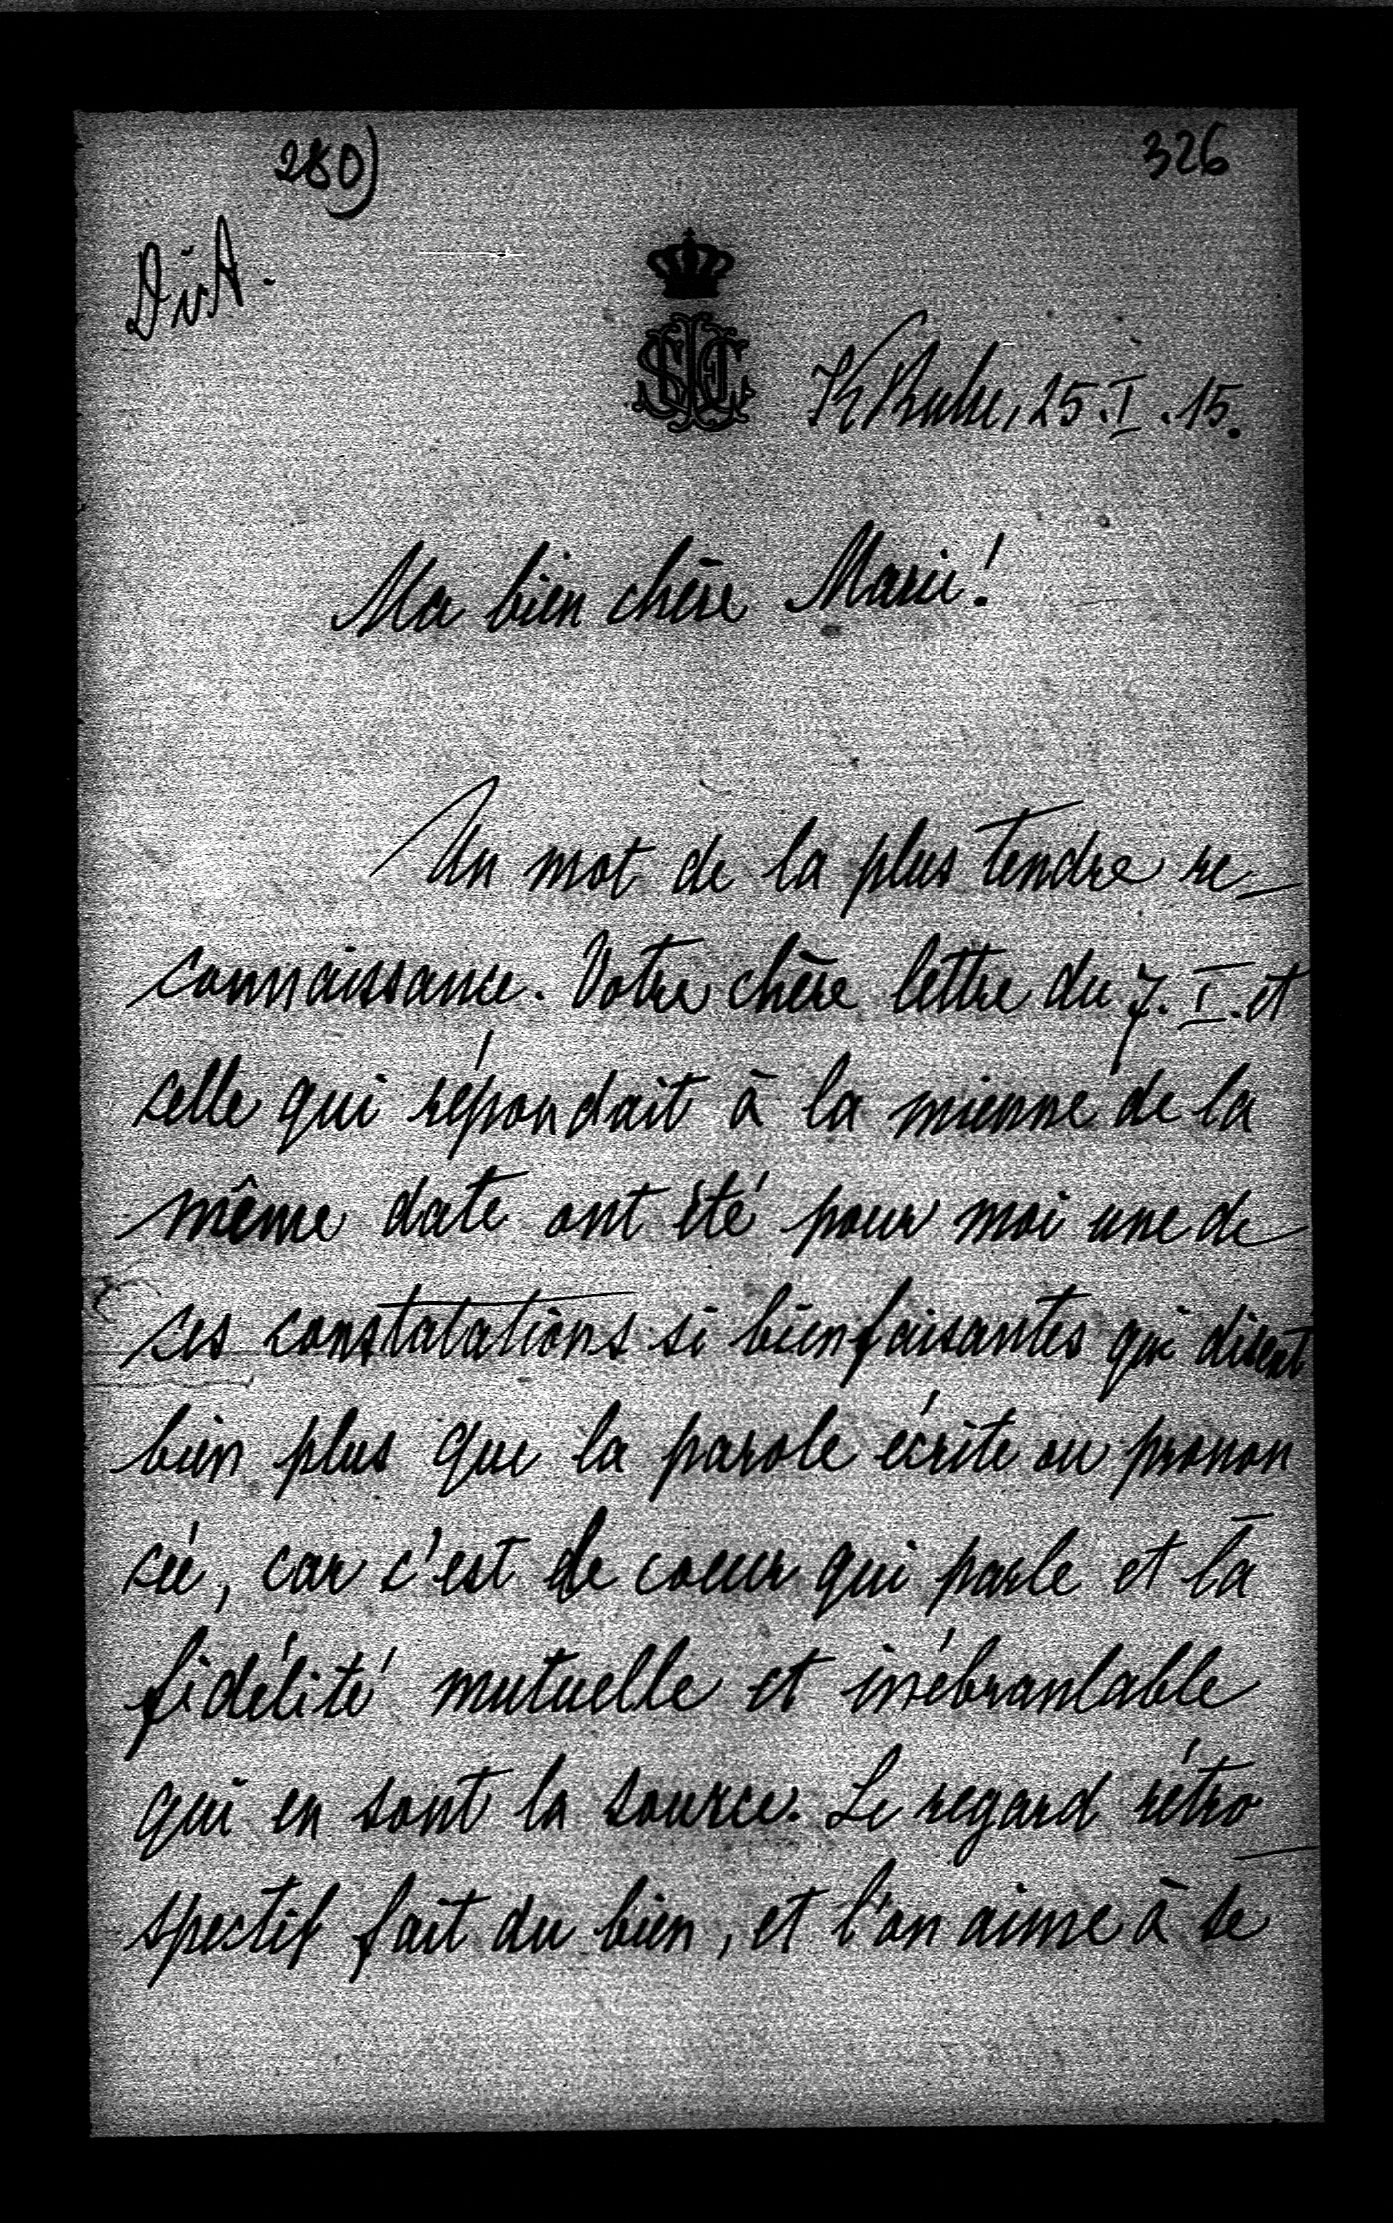 280)
326
DvA.
KRuhe, 25.I.15.
Ma bien chère Marie!
Un mot de la plus tendre re-
connaissance. Votre chère lettre du 7. I. et
celle qui répondait à la mienne de la
même date ont été pour moi une de
ces constatations si bienfaisantes qui disent
bien plus que la parole écrite ou pronon
cée, car c'est le coeur qui parle et la
fidélité mutuelle et inébranlable
qui en sont la source. Le regard rétro-
spectif fait du bien, et l'on aime à se